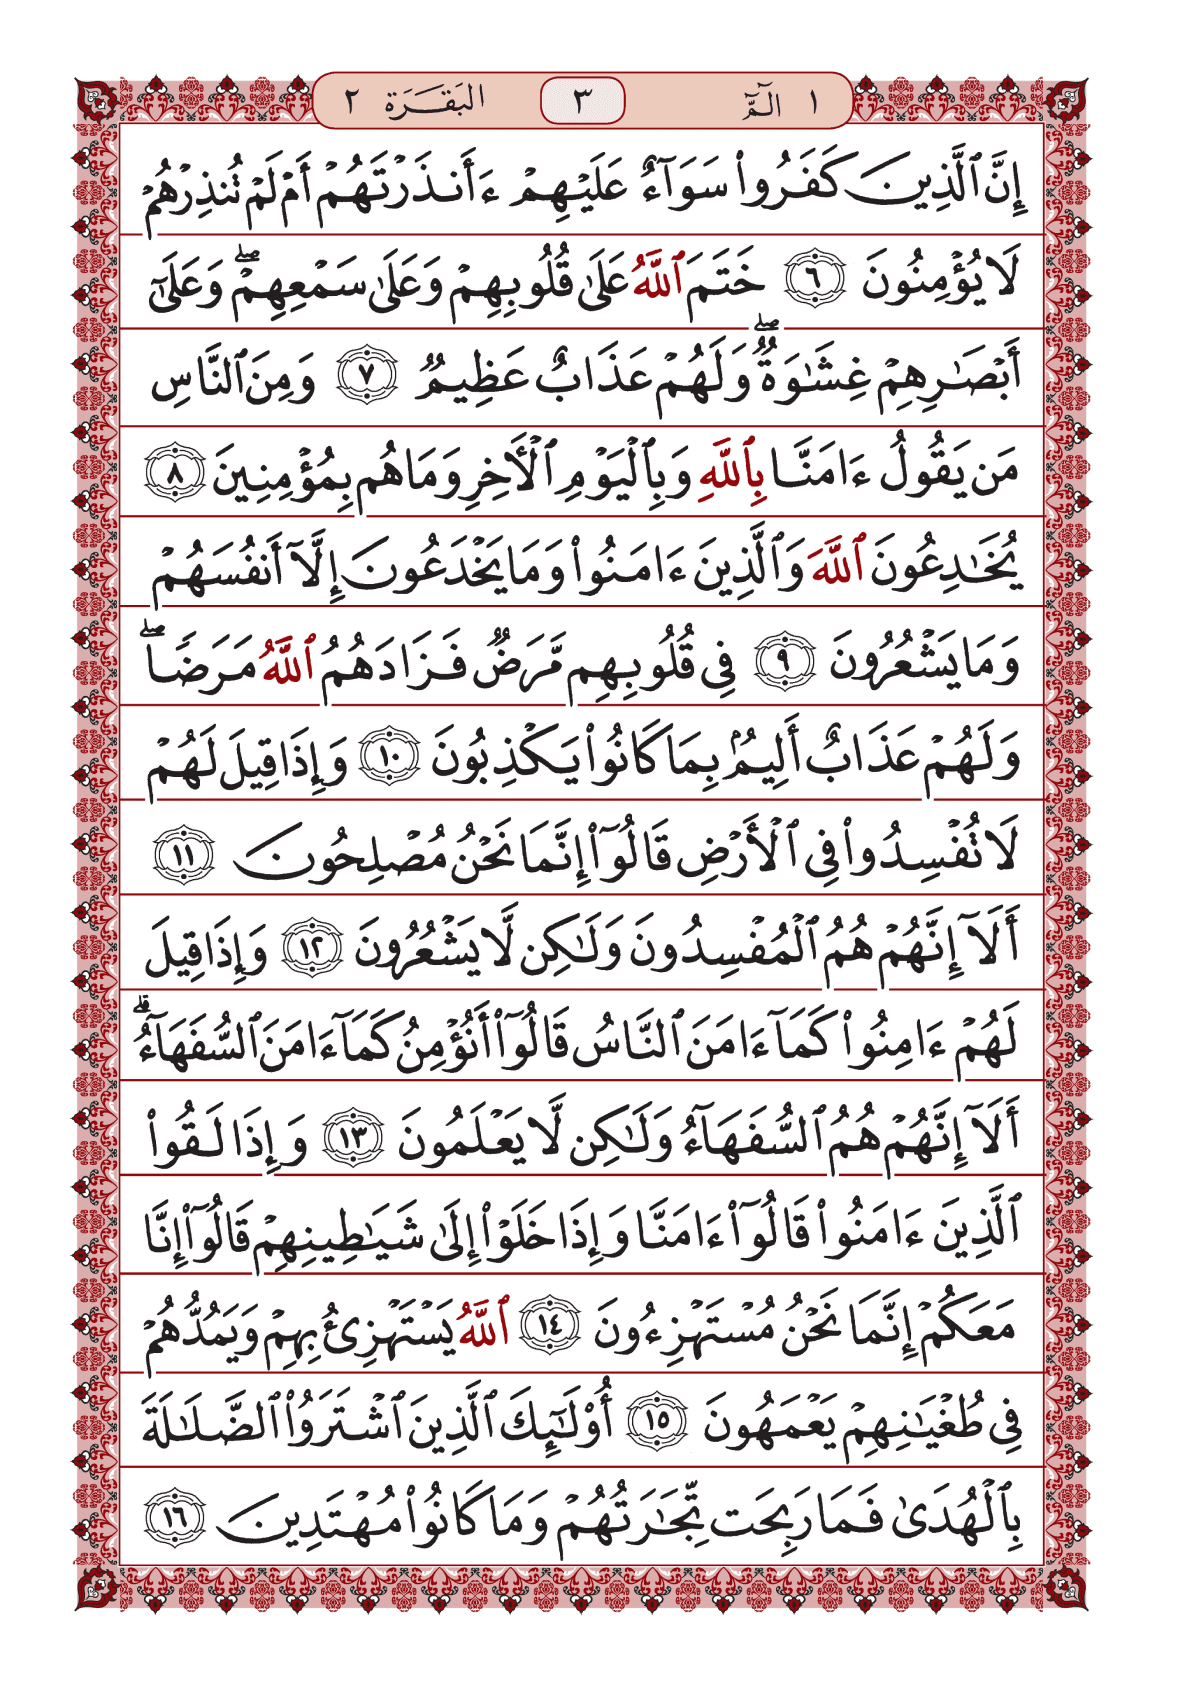 ١ الٓمّٓ ٣ البَقَرَة ٢
إِنَّ ٱلَّذِينَ كَفَرُوا۟ سَوَآءٌ عَلَيْهِمْ ءَأَنذَرْتَهُمْ أَمْ لَمْ تُنذِرْهُمْ
لَا يُؤْمِنُونَ ٦ خَتَمَ ٱللَّهُ عَلَىٰ قُلُوبِهِمْ وَعَلَىٰ سَمْعِهِمْ ۖ وَعَلَىٰٓ
أَبْصَـٰرِهِمْ غِشَـٰوَةٌ ۖ وَلَهُمْ عَذَابٌ عَظِيمٌ ٧ وَمِنَ ٱلنَّاسِ
مَن يَقُولُ ءَامَنَّا بِٱللَّهِ وَبِٱلْيَوْمِ ٱلْـَٔاخِرِ وَمَا هُم بِمُؤْمِنِينَ ٨
يُخَـٰدِعُونَ ٱللَّهَ وَٱلَّذِينَ ءَامَنُوا۟ وَمَا يَخْدَعُونَ إِلَّآ أَنفُسَهُمْ
وَمَا يَشْعُرُونَ ٩ فِى قُلُوبِهِم مَّرَضٌ فَزَادَهُمُ ٱللَّهُ مَرَضًا ۖ
وَلَهُمْ عَذَابٌ أَلِيمٌۢ بِمَا كَانُوا۟ يَكْذِبُونَ ١٠ وَإِذَا قِيلَ لَهُمْ
لَا تُفْسِدُوا۟ فِى ٱلْأَرْضِ قَالُوٓا۟ إِنَّمَا نَحْنُ مُصْلِحُونَ ١١
أَلَآ إِنَّهُمْ هُمُ ٱلْمُفْسِدُونَ وَلَـٰكِن لَّا يَشْعُرُونَ ١٢ وَإِذَا قِيلَ
لَهُمْ ءَامِنُوا۟ كَمَآ ءَامَنَ ٱلنَّاسُ قَالُوٓا۟ أَنُؤْمِنُ كَمَآ ءَامَنَ ٱلسُّفَهَآءُ ۗ
أَلَآ إِنَّهُمْ هُمُ ٱلسُّفَهَآءُ وَلَـٰكِن لَّا يَعْلَمُونَ ١٣ وَإِذَا لَقُوا۟
ٱلَّذِينَ ءَامَنُوا۟ قَالُوٓا۟ ءَامَنَّا وَإِذَا خَلَوْا۟ إِلَىٰ شَيَـٰطِينِهِمْ قَالُوٓا۟ إِنَّا
مَعَكُمْ إِنَّمَا نَحْنُ مُسْتَهْزِءُونَ ١٤ ٱللَّهُ يَسْتَهْزِئُ بِهِمْ وَيَمُدُّهُمْ
فِى طُغْيَـٰنِهِمْ يَعْمَهُونَ ١٥ أُو۟لَـٰٓئِكَ ٱلَّذِينَ ٱشْتَرَوُا۟ ٱلضَّلَـٰلَةَ
بِٱلْهُدَىٰ فَمَا رَبِحَت تِّجَـٰرَتُهُمْ وَمَا كَانُوا۟ مُهْتَدِينَ ١٦